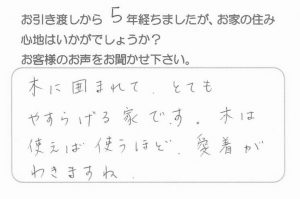 お引き渡しから 5 年経ちましたが、お家の住み
心地はいかがでしょうか?
お客様のお声をお聞かせ下さい。
木に囲まれて、とても
やすらげる家です。木は
使えば使うほど、愛着が
わきますね。